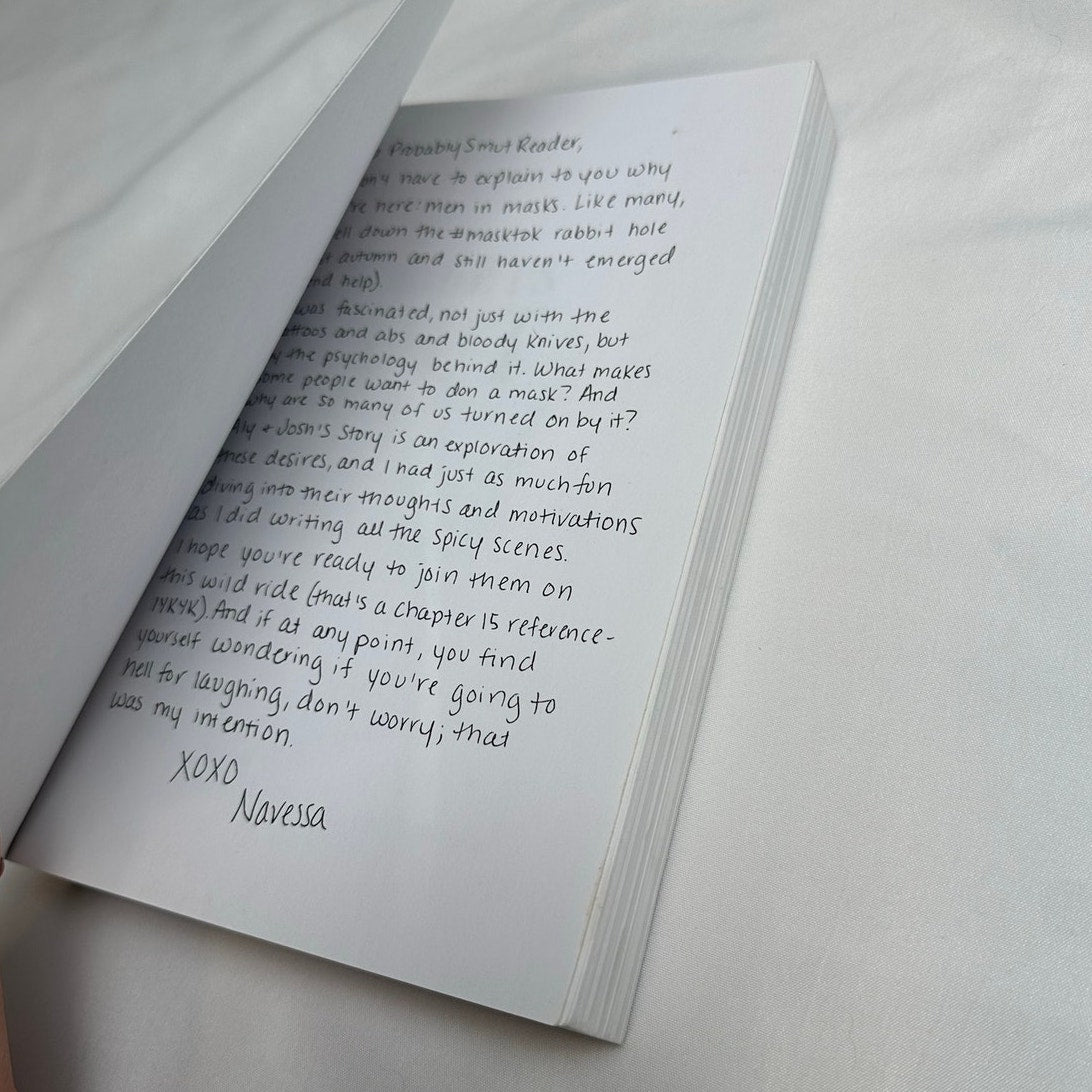 Probably Smut Reader,
have to explain to you why
here: men in masks. Like many,
down the #masktok rabbit hole
autumn and still haven't emerged
help).
was fascinated, not just with the
and abs and bloody knives, but
the psychology behind it. What makes
some people want to don a mask? And
why are so many of us turned on by it?
Aly + Josh's story is an exploration of
these desires, and I had just as much fun
diving into their thoughts and motivations
as I did writing all the spicy scenes.
I hope you're ready to join them on
this wild ride (that's a chapter 15 reference-
IYKYK). And if at any point, you find
yourself wondering if you're going to
hell for laughing, don't worry; that
was my intention.
XOXO
Navessa